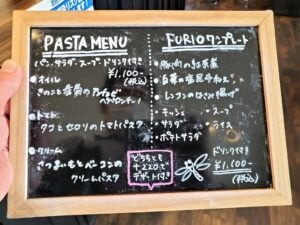 PASTA MENU
パン、サラダ、スープ、ドリンク付き
¥1,100-
(税込)
・オイル
きのこと
ペペロンチーノ
・トマト
タコとセロリのトマトパスタ
・クリーム
さつまいもとベーコンの
クリームパスタ
どちらも
+220で
デザート付き
FURIOワンプレート
豚肉の紅茶煮
白菜の塩昆布和え
レンコンのはさみ揚げ
・キッシュ
・スープ
・サラダ
・ライス
・ポテトサラダ
ドリンク付き
¥1,100-
(税込)